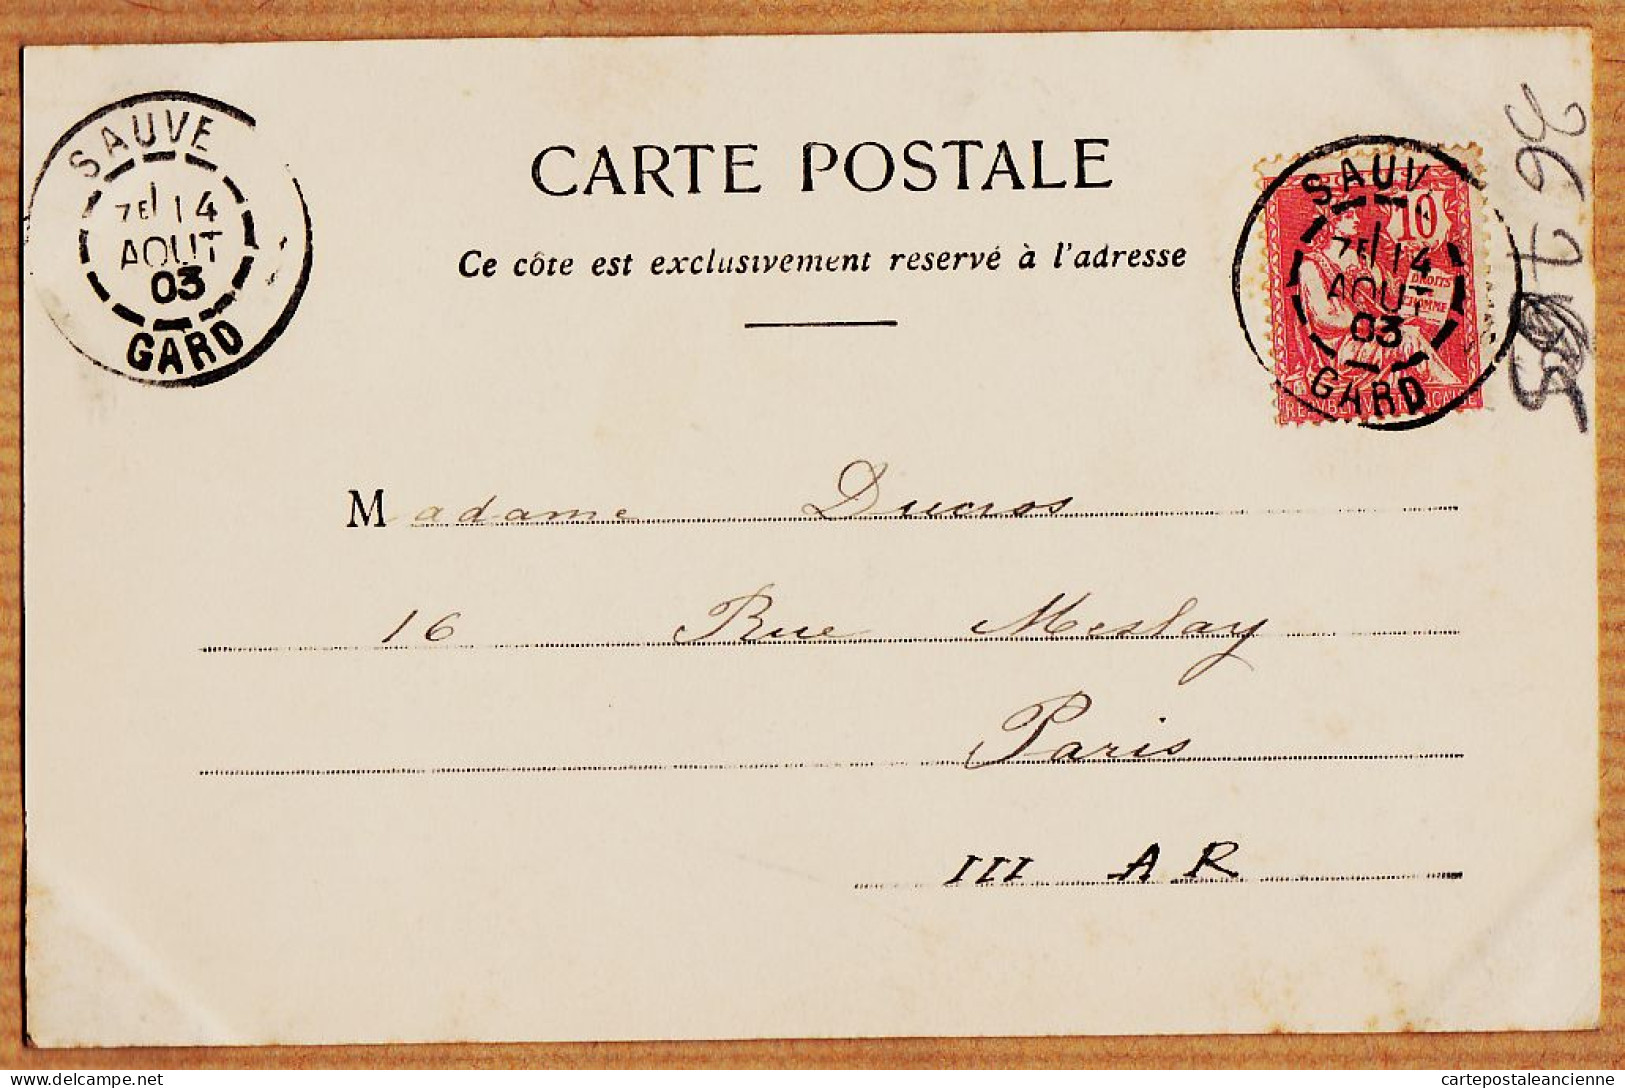 SAUVE
7E 14
AOUT
03
GARD
CARTE POSTALE
Ce côte est exclusivement reservé à l'adresse
SAUV
7E 14
AOUT
03
GARD
10
DROITS
L'HOMME
REPVBLI
Madame Ducros
16 Rue Meslay
Paris
III AR
delcampe.net
cartepostaleancienne